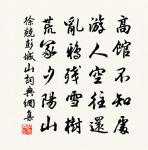 高館不知處
游人空往還
亂鴉殘雪樹
荒冢夕陽山
徐兢彭城山詞典網集